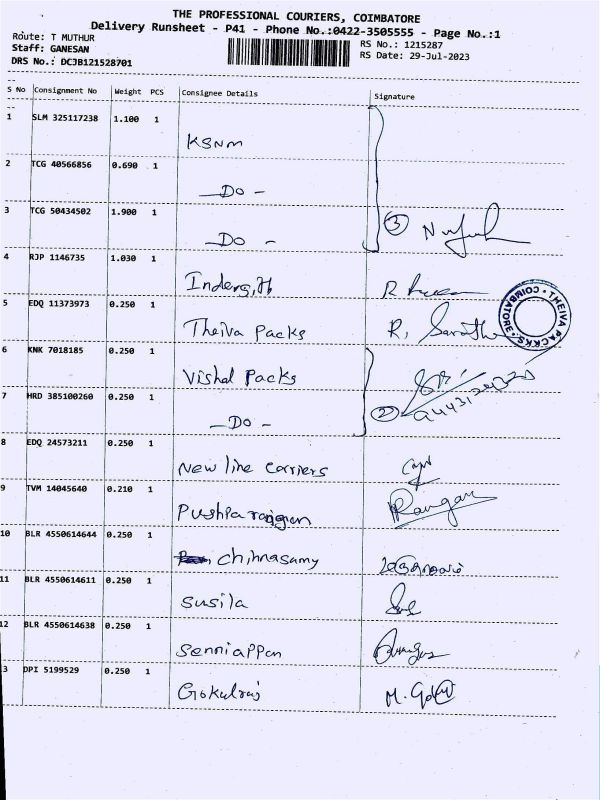 THE PROFESSIONAL COURIERS, COIMBATORE
Delivery Runsheet - P41 - Phone No.:0422-3505555 - Page No.:1
Route: T MUTHUR RS No.: 1215287
Staff: GANESAN RS Date: 29-Jul-2023
DRS No.: DCJB121528701
S No Consignment No Weight PCS Consignee Details Signature
1 SLM 325117238 1.100 1
KSNM
2 TCG 40566856 0.690 1
—DO —
3 TCG 50434502 1.900 1
—DO — ③
4 RJP 1146735 1.030 1
5 EDQ 11373973 0.250 1
Theiva Packs R.
THEIVA PACKS * COIMBATORE *
6 KNK 7018185 0.250 1
Vishal Packs
7 HRD 385100260 0.250 1
—DO — ②
8 EDQ 24573211 0.250 1
New line carriers
9 TVM 14045640 0.210 1
Rangan
10 BLR 4550614644 0.250 1
chinnasamy
11 BLR 4550614611 0.250 1
Susila
12 BLR 4550614638 0.250 1
Senniappan
3 DPI 5199529 0.250 1
Gokulraj